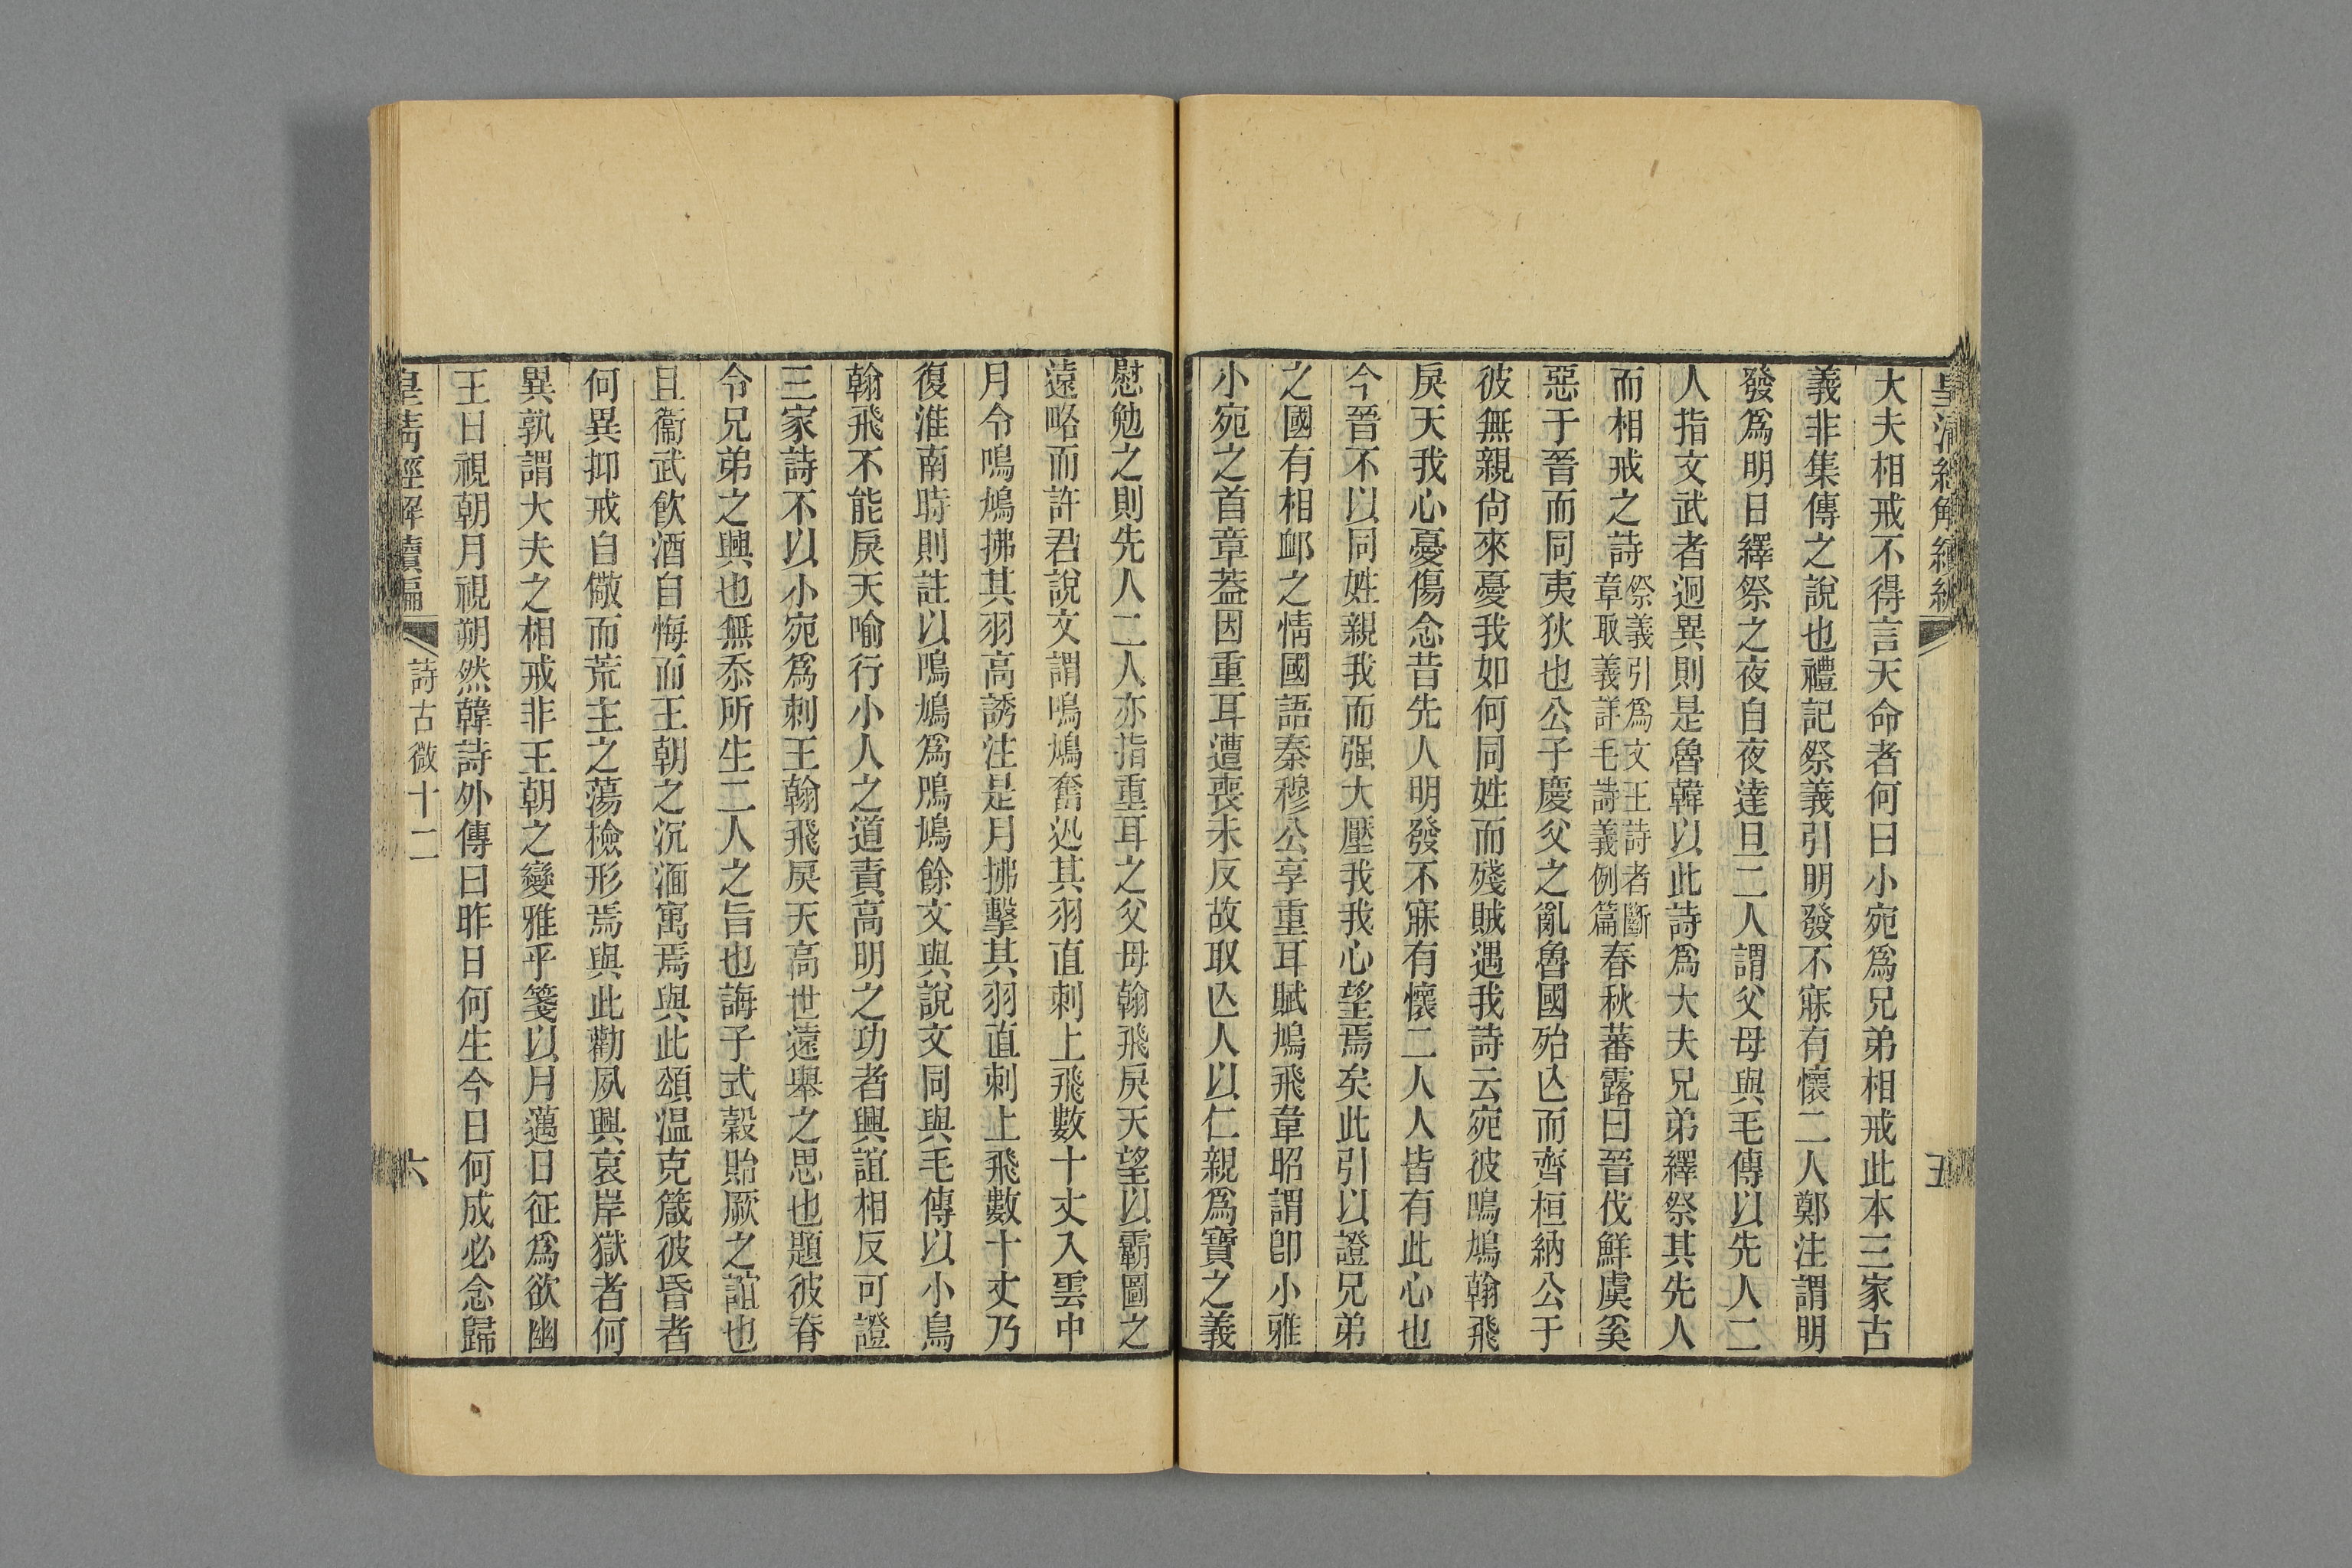 皇清經解續編
五
大夫相戒不得言天命者何曰小宛爲兄弟相戒此本三家古
義非集傳之說也禮記祭義引明發不寐有懷二人鄭注謂明
發爲明日繹祭之夜自夜達旦二人謂父母與毛傳以先人二
人指文武者迥異則是魯韓以此詩爲大夫兄弟繹祭其先人
而相戒之詩祭義引爲文王詩者斷章取義詳毛詩義例篇春秋蕃露曰晉伐鮮虞奚
惡于晉而同夷狄也公子慶父之亂魯國殆亾而齊桓納公于
彼無親尙來憂我如何同姓而殘賊遇我詩云宛彼鳴鳩翰飛
戾天我心憂傷念昔先人明發不寐有懷二人人皆有此心也
今晉不以同姓親我而强大壓我我心望焉矣此引以證兄弟
之國有相䘏之情國語秦穆公享重耳賦鳩飛韋昭謂卽小雅
小宛之首章葢因重耳遭喪未反故取亾人以仁親爲寶之義
慰勉之則先人二人亦指重耳之父母翰飛戾天望以霸圖之
遠略而許君說文謂鳴鳩奮迅其羽直刺上飛數十丈入雲中
月令鳴鳩拂其羽高誘注是月拂擊其羽直刺上飛數十丈乃
復淮南時則註以鳴鳩爲鳲鳩餘文與說文同與毛傳以小鳥
翰飛不能戾天喻行小人之道責高明之功者興誼相反可證
三家詩不以小宛爲刺王翰飛戾天高世遠舉之思也題彼脊
令兄弟之興也無忝所生二人之旨也誨子式穀貽厥之誼也
且衞武飮酒自悔而王朝之沉湎寓焉與此頌温克箴彼昏者
何異抑戒自儆而荒主之蕩檢形焉與此勸夙興哀岸獄者何
異孰謂大夫之相戒非王朝之變雅乎箋以月邁日征爲欲幽
王日視朝月視朔然韓詩外傳曰昨日何生今日何成必念歸
皇清經解續編
詩古微十二
六